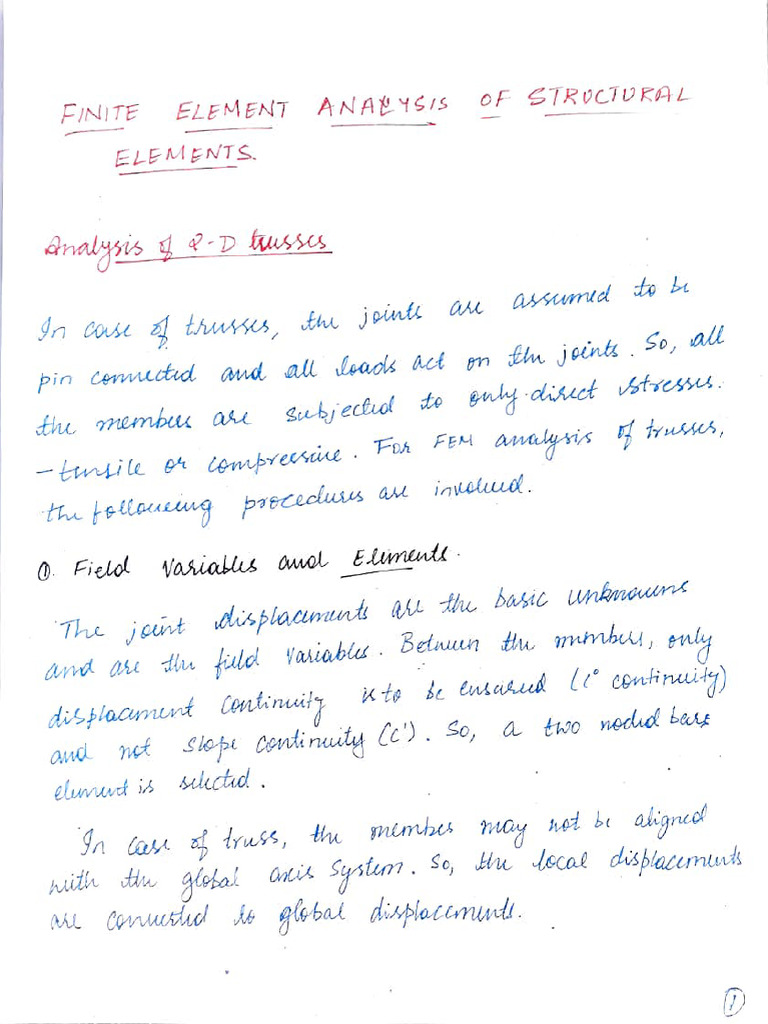 FINITE ELEMENT ANALYSIS OF STRUCTURAL
ELEMENTS.
Analysis of 2-D trusses
In case of trusses, the joints are assumed to be
pin connected and all loads act on the joints. So, all
the members are subjected to only direct stresses.
- tensile or compressive. For FEM analysis of trusses,
the following procedures are involved.
①. Field Variables and Elements.
The joint displacements are the basic unknowns
and are the field variables. Between the members, only
displacement continuity is to be ensured (C° continuity)
and not slope continuity (C'). So, a two noded bar
element is selected.
In case of truss, the member may not be aligned
with the global axis system. So, the local displacements
are converted to global displacements.
①